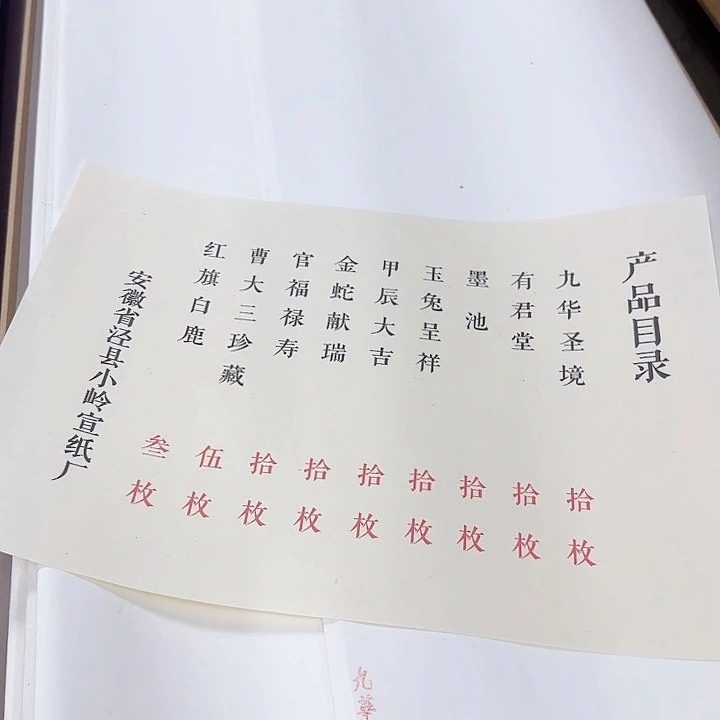 产品目录
九华圣境 拾枚
有君堂 拾枚
墨池 拾枚
玉兔呈祥 拾枚
甲辰大吉 拾枚
金蛇献瑞 拾枚
官福禄寿 拾枚
曹大三珍藏 伍枚
红旗白鹿 叁枚
安徽省泾县小岭宣纸厂
九華